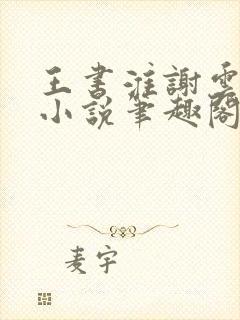 王書淮謝雲
小說筆趣閣
麦宇